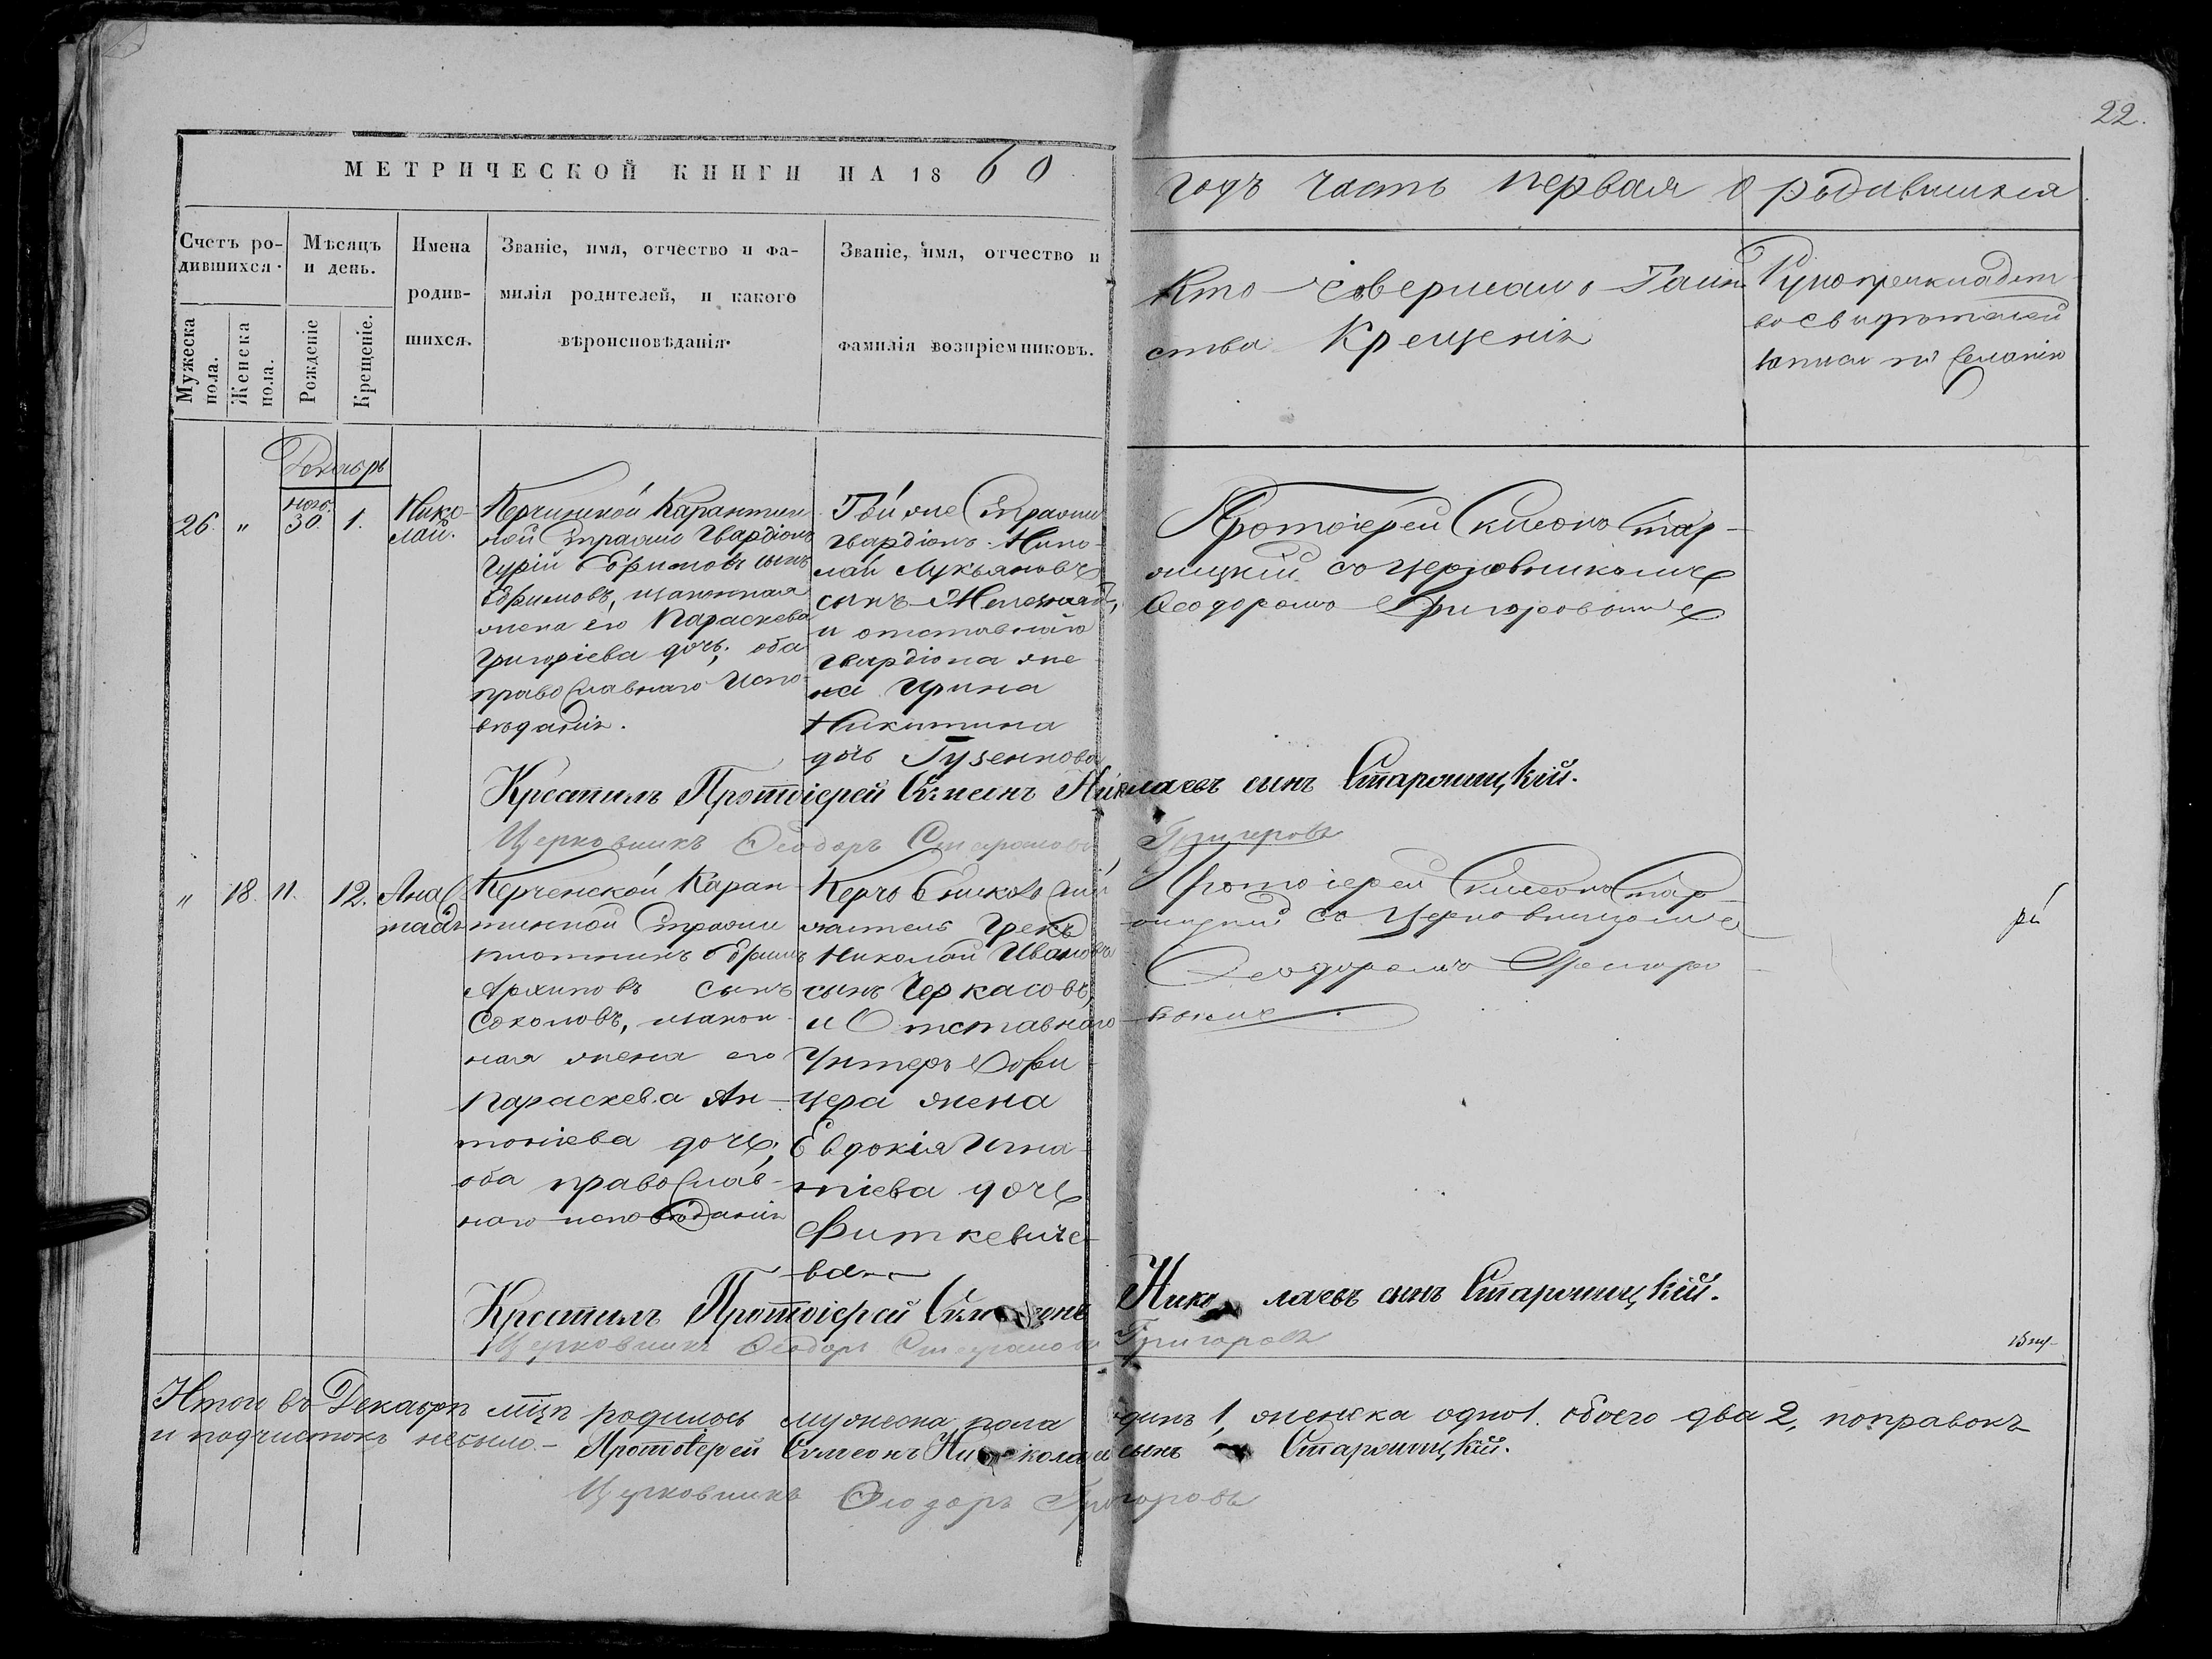 22.
МЕТРИЧЕСКОЙ КНИГИ НА 1860
годъ часть первая о родившихся
Счетъ ро-
дившихся.
Мужеска
пола.
Женска
пола.
Мѣсяцъ
и день.
Рожденіе
Крещеніе.
Имена
родив-
шихся.
Званіе, имя, отчество и фа-
милія родителей, и какого
вѣроисповѣданія.
Званіе, имя, отчество и
фамилія воспріемниковъ.
Кто совершалъ Таин
ства Крещенія
Рукоприкладст
во свидѣтелей
записи по желанію
Декабрь
26. " нояб. 30. 1.
Нико-
лай.
Керчинской Карантин
ной Стражи Гвардіонъ
Гурій Ефимовъ сынъ
Ефимовъ, законная
жена его Параскева
Григоріева дочь; оба
православнаго испо-
вѣданія.
Той же Стражи
гвардіонъ Нико-
лай Лукьяновъ
сынъ
и отставнаго
гвардіона же-
на Ирина
Никитина
дочь Гузенкова
Протоіерей Симеонъ Стар-
жицкій со церковникомъ
Ѳеодоромъ Григоровымъ
Крестилъ Протоіерей Симеонъ Николаевъ сынъ Старжицкій.
Церковникъ Ѳеодоръ Стефановъ Григоровъ
" 18. 11. 12.
Анас
Керченской Каран-
тинной Стражи
плотникъ Ефимъ
Архиповъ сынъ
Соколовъ, закон-
ная жена его
Параскева Ан-
тоніева дочь;
оба православ-
наго исповѣданія
Керчь Еникольскій
житель Грекъ
Николай Ивановъ
сынъ Черкасовъ,
и Отставнаго
Унтеръ Офи-
цера жена
Евдокія Игна-
тіева дочь
Фиткевиче-
ва
Протоіерей Симеонъ Стар-
жицкій со Церковникомъ
Ѳеодоромъ Григоро-
вымъ
Крестилъ Протоіерей Симеонъ Николаевъ сынъ Старжицкій.
Церковникъ Ѳеодоръ Стефановъ Григоровъ
Итого въ Декабрѣ мцѣ родилось мужеска пола одинъ 1, женска одно 1. обоего два 2, поправокъ
и подчистокъ небыло. - Протоіерей Симеонъ Николаевъ сынъ Старжицкій.
Церковникъ Ѳеодоръ Григоровъ